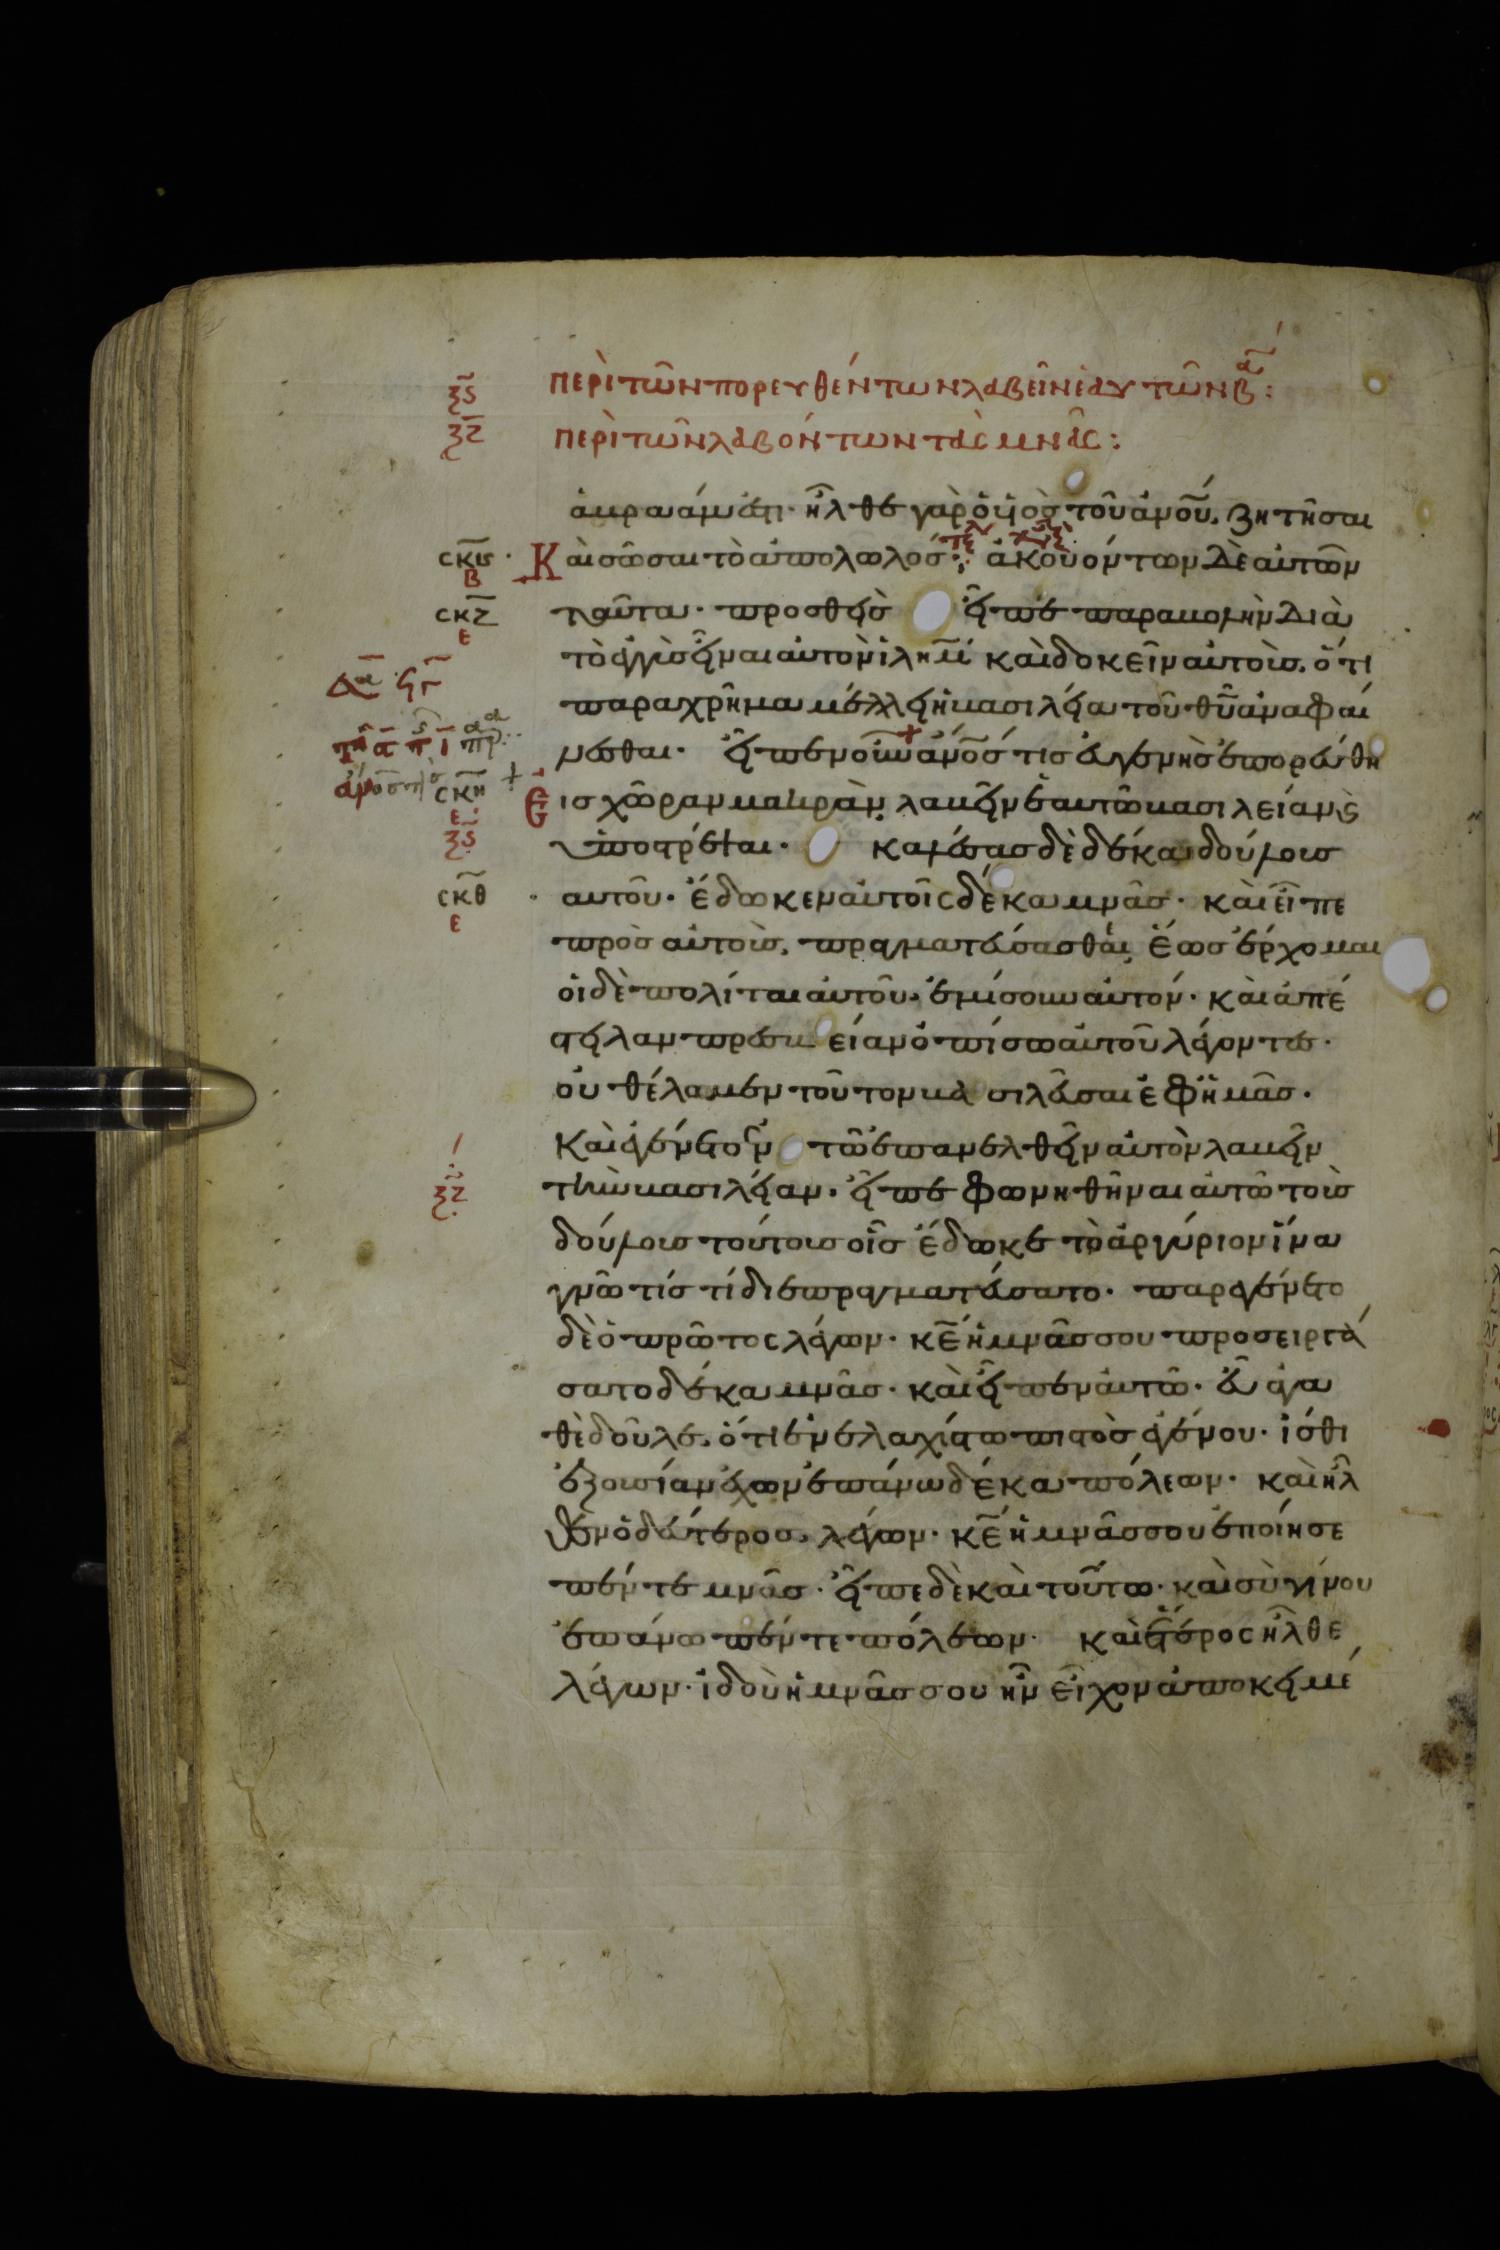 ξϛ περὶ τῶν πορευθέντων λαβεῖν ἑαυτῶν β̑ α:
ξζ περὶ τῶν λαβόντων τὰς μνᾶς:
ἀβραάμ ἐστι· ἦλθε γὰρ ὁ υἱὸς τοῦ ἀνου. ζητῆσαι
σκϛ β Καὶ σῶσαι τὸ ἀπολωλός· ἀκουόντων δὲ αὐτῶν
σκζ ε ταῦτα· προσθεὶς εἶπε παραβολὴν διὰ
τὸ ἐγγὺς εἶναι αὐτὸν ἱλημ καὶ δοκεῖν αὐτοὺς, ὅτι
παραχρῆμα μέλλει ἡ βασιλεία τοῦ θυ ἀναφαί
νεσθαι· εἶπεν οὖν ἀνος τις εὐγενὴς ἐπορεύθη
σκη ε ξϛ Εἰς χώραν μακρὰν, λαβεῖν ἑαυτῶ βασιλείαν καὶ
ὑποστρέψαι· καλέσας δὲ δέκα δούλους
σκθ ε αυτοῦ· ἔδωκεν αὐτοῖς δέκα μνᾶς· καὶ εἶπε
πρὸς αὐτοὺς, πραγματεύσασθαι, ἕως ἔρχομαι
οἱ δὲ πολίται αὐτοῦ, ἐμίσουν αὐτόν· καὶ ἀπέ
στειλαν πρεσβείαν ὀπίσω αὐτοῦ λέγοντες·
οὐ θέλομεν τοῦτον βασιλεῦσαι ἐφ ἡμᾶς·
Καὶ ἐγένετο ἐν τῶ ἐπανελθεῖν αὐτὸν λαβεῖν
ξζ τὴν βασιλείαν· εἶπε φωνηθῆναι αὐτῶ τοὺς
δούλους τούτους οἷς ἔδωκε τὸ ἀργύριον ἵνα
γνῶ τίς τί διεπραγματεύσατο· παρεγένετο
δὲ ὁ πρῶτος λέγων· κε ἡ μνᾶς σου προσειργά
σατο δέκα μνᾶς· καὶ εἶπεν αὐτῶ· εὖ ἀγα
θὲ δοῦλε, ὅτι ἐν ἐλαχίστω πιστὸς ἐγένου· ἴσθι
ἐξουσίαν ἔχων ἐπάνω δέκα πόλεων· καὶ ἦλ
θεν ὁ δεύτερος, λέγων· κε ἡ μνᾶς σου ἐποίησε
πέντε μνᾶς· εἶπε δὲ καὶ τούτω· καὶ σὺ γίνου
ἐπάνω πέντε πόλεων· καὶ ἕτερος ἦλθε
λέγων· ἰδοὺ ἡ μνᾶς σου ἣν εἶχον ἀποκειμέ